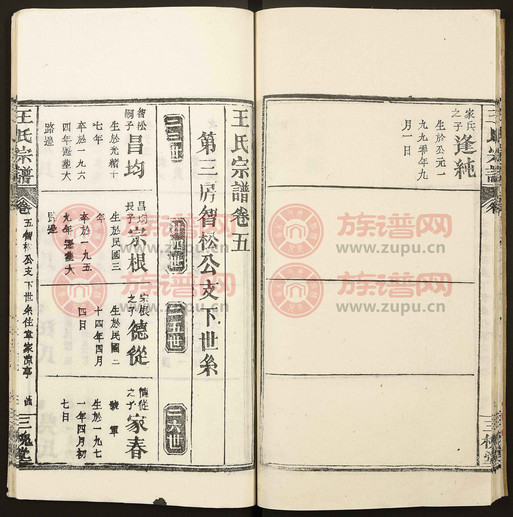 王氏宗譜
家兵之子 逢純
生於公元一九九一年九月一日
族譜网
www.zupu.cn
王氏宗譜卷五
第三房智松公支下世系
二三世
二四世
二五世
二六世
智松嗣子 昌均
生於光緒十七年
卒於一九六四年
路邊
昌均長子 宗根
生於民國三
卒於一九五九年
路邊
宗根之子 德從
生於民國二十四年四月四日
德從之子 家春
號軍
生於一九七一年四月初七日
王氏宗譜
卷五智松公支下世系
三槐堂